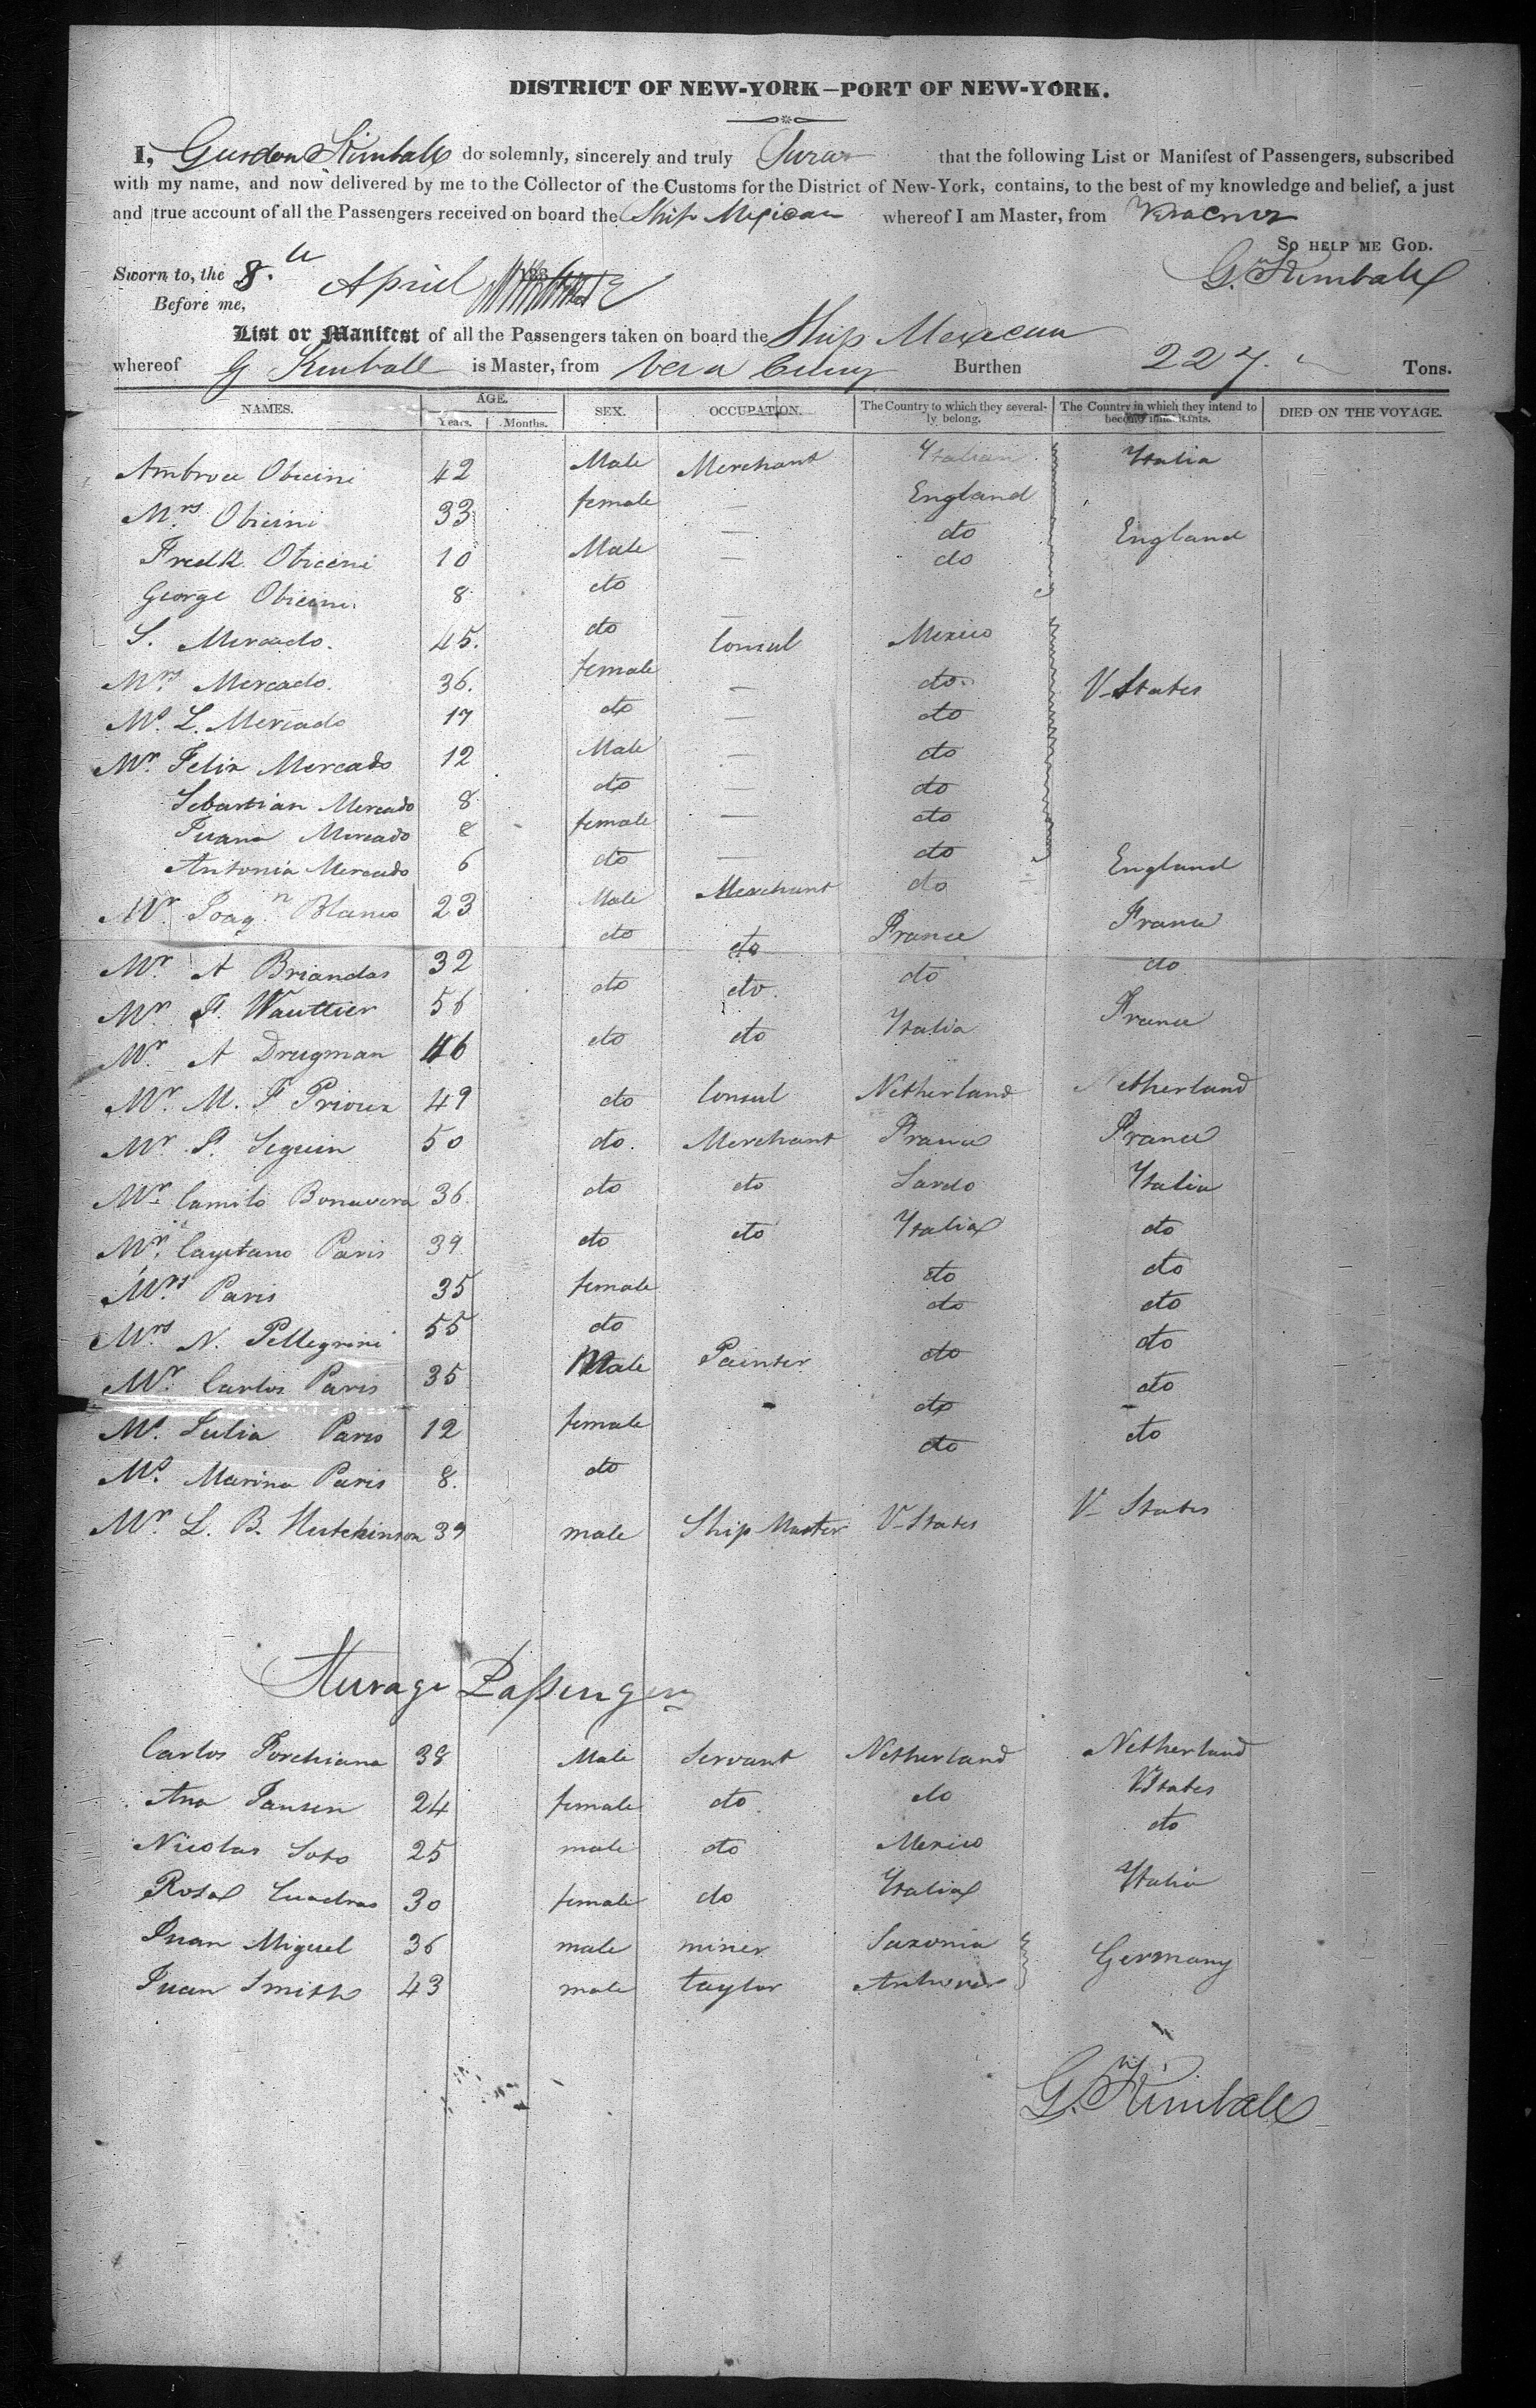 DISTRICT OF NEW-YORK—PORT OF NEW-YORK.
I, Gurdon Kimball do solemnly, sincerely and truly Swear that the following List or Manifest of Passengers, subscribed
with my name, and now delivered by me to the Collector of the Customs for the District of New-York, contains, to the best of my knowledge and belief, a just
and true account of all the Passengers received on board the Ship Mexican whereof I am Master, from Veracruz
So help me God.
Sworn to, the 8. April G. Kimball
Before me,
List or Manifest of all the Passengers taken on board the Ship Mexican
whereof G Kimball is Master, from Vera Cruz Burthen 227. Tons.
NAMES. AGE. Years. Months. SEX. OCCUPATION. The Country to which they severally belong. The Country in which they intend to become inhabitants. DIED ON THE VOYAGE.
Ambroce Obicini 42 Male Merchant Italian Italia
Mrs Obicini 33 female — England
Fredk. Obicini 10 Male — do England
George Obicini. 8 do — do
S. Mercado. 45. do Consul Mexico
Mrs. Mercado. 36. female — do. U-States
Ms. L. Mercado 17 do — do
Mr. Felix Mercado 12 Male — do
Sebastian Mercado 8 do — do
Juana Mercado 8 female — do
Antonia Mercado 6 do — do
Mr. Joaqn. Blanco 23 Male Merchant do England
Mr A Briandas 32 do do France France
Mr F. Wauttier 56 do do. do do
Mr. A Drugman 46 do do Italia France
Mr. M. F Prioux 49 do Consul Netherland Netherland
Mr P. Seguin 50 do. Merchant France France
Mr. Camilo Bonavera 36. do do Sardo Italia
Mr. Cayetano Paris 39 do do Italia do
Mrs. Paris 35 female do do
Mrs. N. Pellegrini 55 do do do
Mr. Carlos Paris 35 Male Painter do do
Ms. Julia Paris 12 female do do
Ms. Marina Paris 8. do do do
Mr. L. B. Hutchinson 39 male Ship Master U-States U-States
Sturage Passengers
Carlos Forchiana 38 Male Servant Netherland Netherland
Ana Jansen 24 female do do UStates
Nicolas Soto 25 male do Mexico do
Rosa Cuadras 30 female do Italia Italia
Juan Miguel 36 male miner Saxonia Germany
Juan Smith 43 male taylor
G. Kimball